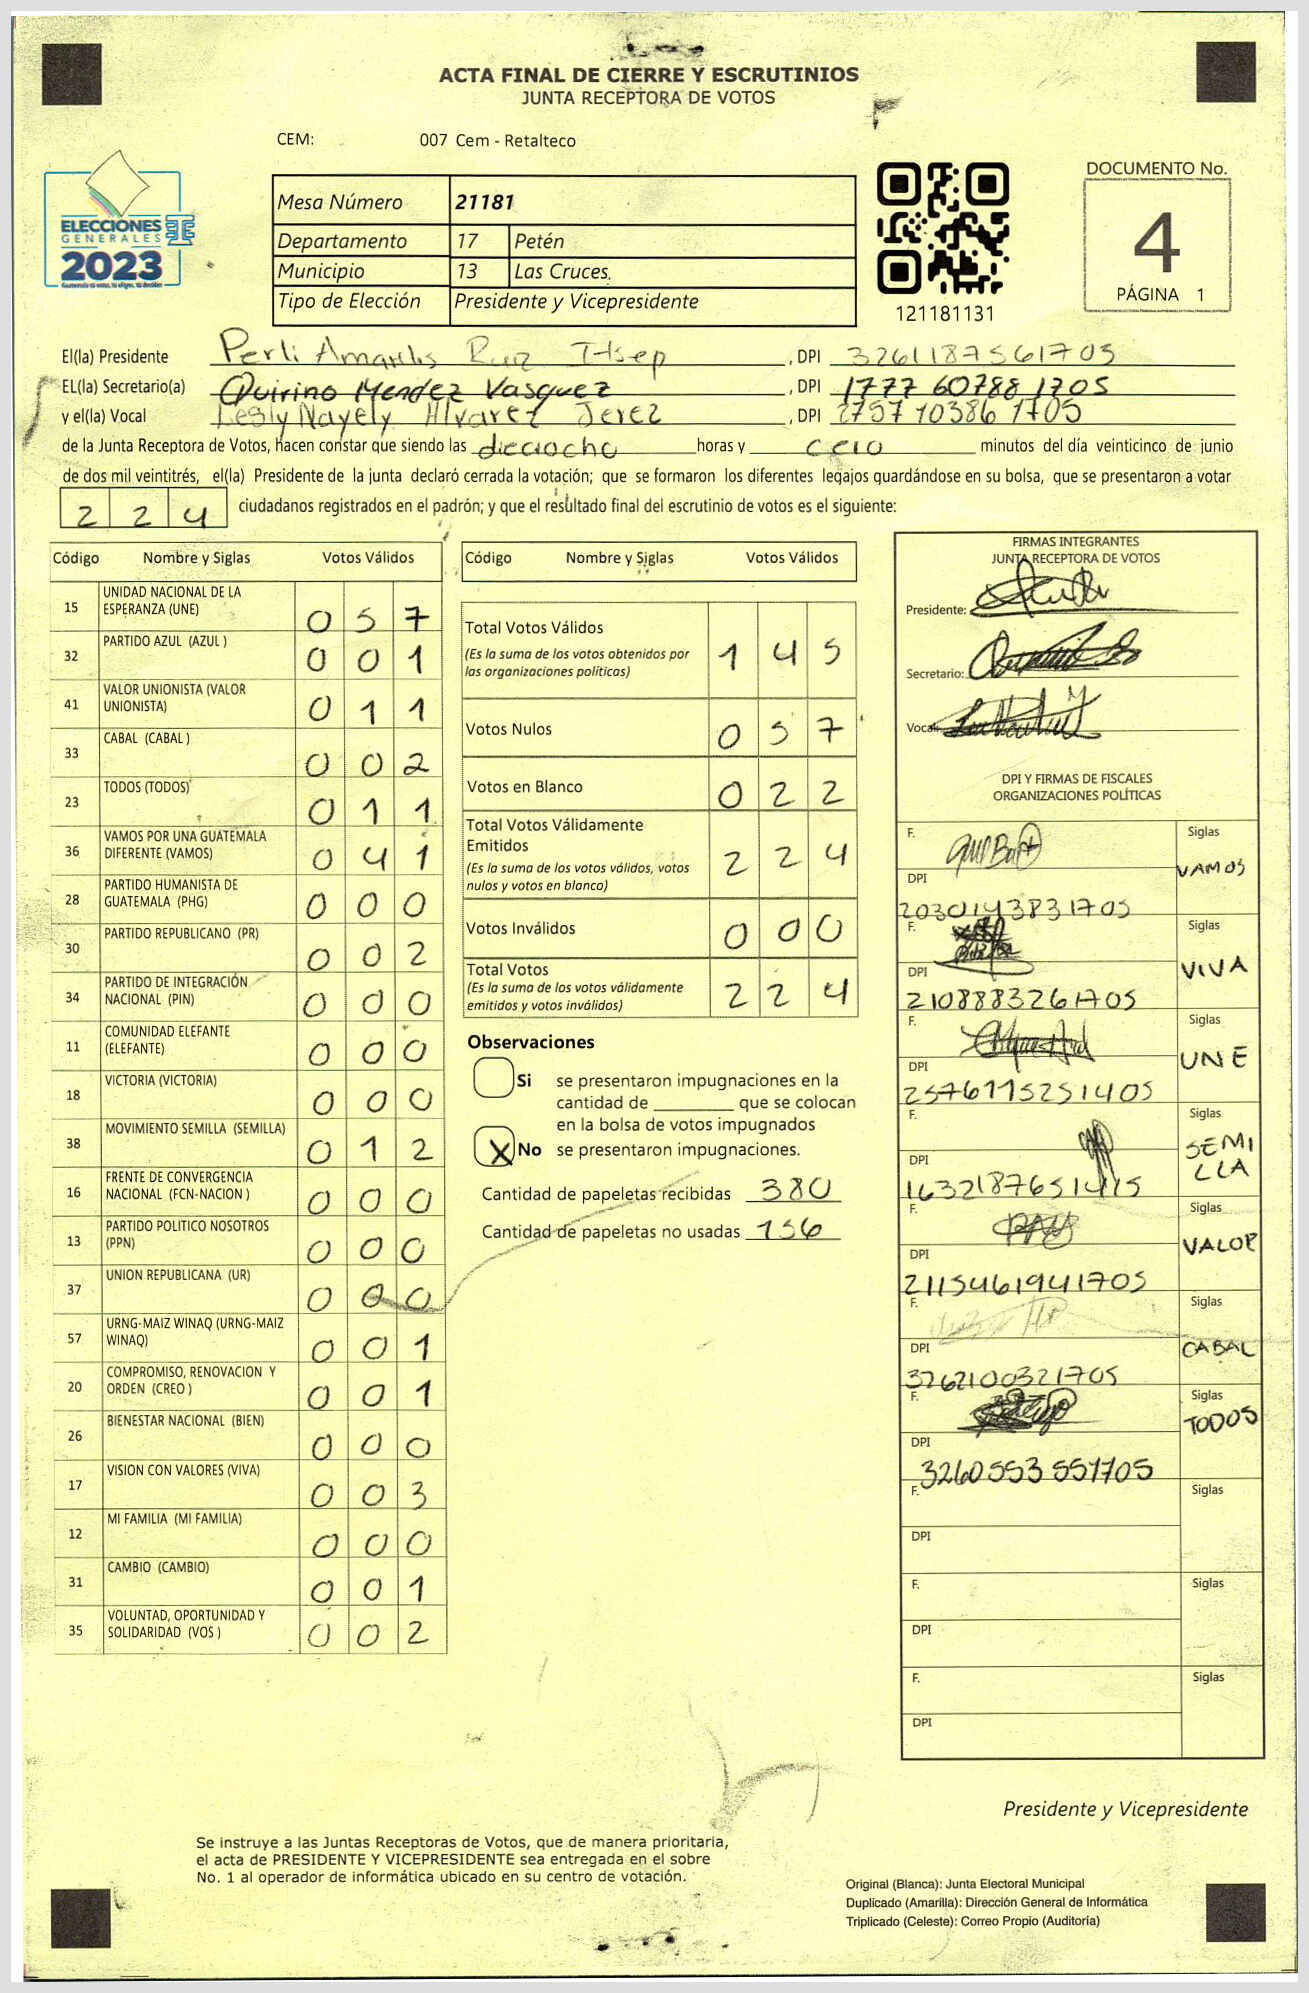 ACTA FINAL DE CIERRE Y ESCRUTINIOS
JUNTA RECEPTORA DE VOTOS
CEM: 007 Cem - Retalteco
ELECCIONES
GENERALES
2023
Mesa Número 21181
Departamento 17 Petén
Municipio 13 Las Cruces,
Tipo de Elección Presidente y Vicepresidente
121181131
DOCUMENTO No.
4
PÁGINA 1
El(la) Presidente Perli Amarilis Ruiz , DPI 3261187561705
EL(la) Secretario(a) Quirino Mendez Vasquez , DPI 1777 60788 1705
y el(la) Vocal Lesly Nayely Alvarez Jerez , DPI 2757 10386 1705
de la Junta Receptora de Votos, hacen constar que siendo las dieciocho horas y cero minutos del día veinticinco de junio
de dos mil veintitrés, el(la) Presidente de la junta declaró cerrada la votación; que se formaron los diferentes legajos guardándose en su bolsa, que se presentaron a votar
224 ciudadanos registrados en el padrón; y que el resultado final del escrutinio de votos es el siguiente:
Código Nombre y Siglas Votos Válidos
15 UNIDAD NACIONAL DE LA
ESPERANZA (UNE) 057
32 PARTIDO AZUL (AZUL ) 001
41 VALOR UNIONISTA (VALOR
UNIONISTA) 011
33 CABAL (CABAL ) 002
23 TODOS (TODOS) 011
36 VAMOS POR UNA GUATEMALA
DIFERENTE (VAMOS) 041
28 PARTIDO HUMANISTA DE
GUATEMALA (PHG) 000
30 PARTIDO REPUBLICANO (PR) 002
34 PARTIDO DE INTEGRACIÓN
NACIONAL (PIN) 000
11 COMUNIDAD ELEFANTE
(ELEFANTE) 000
18 VICTORIA (VICTORIA) 000
38 MOVIMIENTO SEMILLA (SEMILLA) 012
16 FRENTE DE CONVERGENCIA
NACIONAL (FCN-NACION ) 000
13 PARTIDO POLITICO NOSOTROS
(PPN) 000
37 UNION REPUBLICANA (UR) 000
57 URNG-MAIZ WINAQ (URNG-MAIZ
WINAQ) 001
20 COMPROMISO, RENOVACION Y
ORDEN (CREO ) 001
26 BIENESTAR NACIONAL (BIEN) 000
17 VISION CON VALORES (VIVA) 003
12 MI FAMILIA (MI FAMILIA) 000
31 CAMBIO (CAMBIO) 001
35 VOLUNTAD, OPORTUNIDAD Y
SOLIDARIDAD (VOS ) 002
Código Nombre y Siglas Votos Válidos
Total Votos Válidos 145
(Es la suma de los votos obtenidos por
las organizaciones políticas)
Votos Nulos 057
Votos en Blanco 022
Total Votos Válidamente
Emitidos 224
(Es la suma de los votos válidos, votos
nulos y votos en blanco)
Votos Inválidos 000
Total Votos 224
(Es la suma de los votos válidamente
emitidos y votos inválidos)
Observaciones
Si se presentaron impugnaciones en la
cantidad de ________ que se colocan
en la bolsa de votos impugnados
X No se presentaron impugnaciones.
Cantidad de papeletas recibidas 380
Cantidad de papeletas no usadas 156
FIRMAS INTEGRANTES
JUNTA RECEPTORA DE VOTOS
Presidente:
Secretario:
Vocal:
DPI Y FIRMAS DE FISCALES
ORGANIZACIONES POLÍTICAS
F. Siglas
VAMOS
DPI
2030143831705
F. Siglas
VIVA
DPI
2108883261705
F. Siglas
UNE
DPI
2576115251405
F. Siglas
SEMI
LLA
DPI
1632187651415
F. Siglas
VALOR
DPI
2115461941705
F. Siglas
CABAL
DPI
3262100321705
F. Siglas
TODOS
DPI
3260553551705
F. Siglas
DPI
F. Siglas
DPI
F. Siglas
DPI
Presidente y Vicepresidente
Se instruye a las Juntas Receptoras de Votos, que de manera prioritaria,
el acta de PRESIDENTE Y VICEPRESIDENTE sea entregada en el sobre
No. 1 al operador de informática ubicado en su centro de votación.
Original (Blanca): Junta Electoral Municipal
Duplicado (Amarilla): Dirección General de Informática
Triplicado (Celeste): Correo Propio (Auditoría)